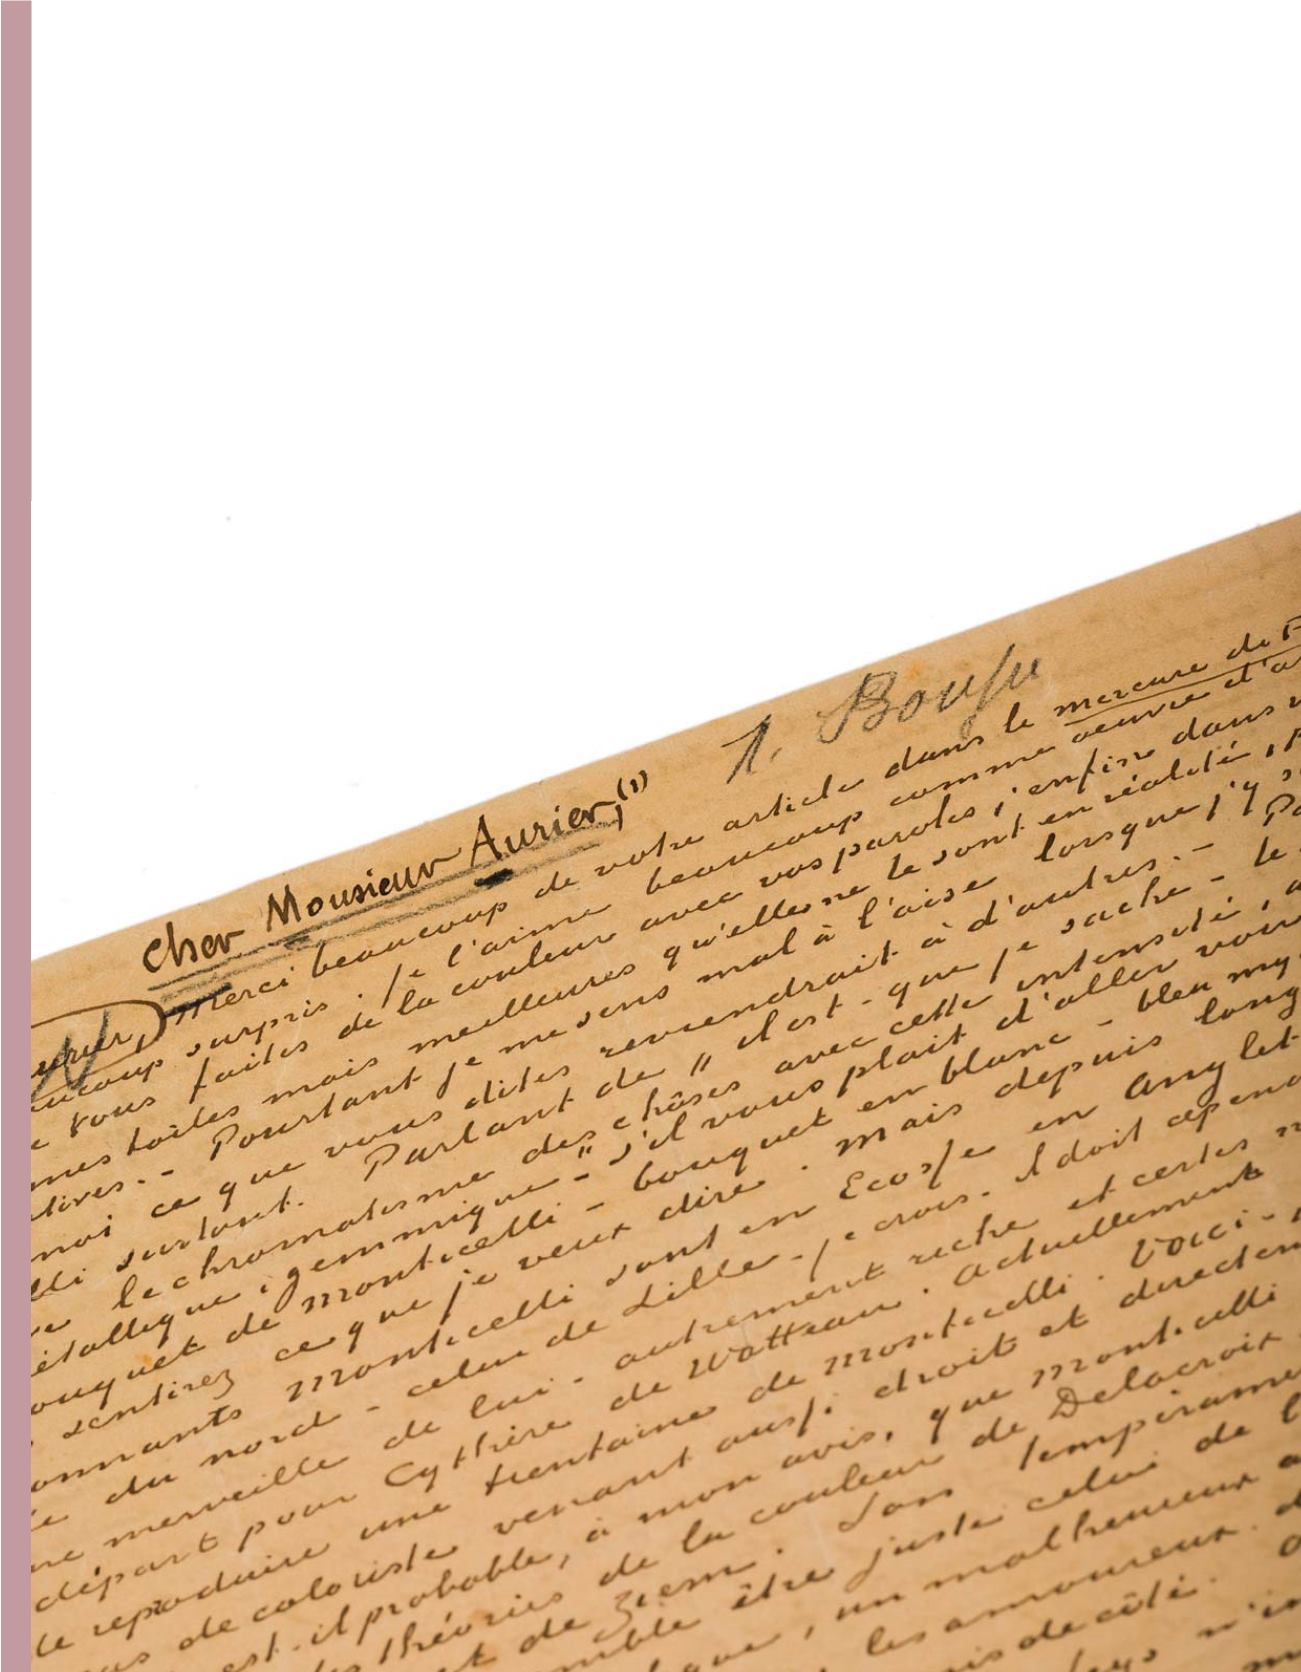 1. Bouju
cher Monsieur Aurier, (1)
urier, Merci beaucoup de votre article dans le mercure de F
aucoup surpris. Je l'aime beaucoup comme oeuvre d'a
e vous faites de la couleur avec vos paroles; enfin dans
mes toiles mais meilleures qu'elles ne le sont en réalité,
atives. - Pourtant je me sens mal à l'aise lorsque j'y s
moi ce que vous dites reviendrait à d'autres. -
lli surtout. Parlant de " il est - que je sache - le
le chromatisme des chôses avec cette intensité,
étallique, gemmique - " s'il vous plait d'aller voir
ouquet de monticelli - bouquet en blanc - bleu my
sentirez ce que je veux dire. mais depuis long
onnants monticelli sont en Ecosse en Anglet
du nord - celui de Lille - je crois. il doit cepend
ne merveille de lui - autrement riche et certes
départ pour Cythère de Watteau. Actuellement
le reproduire une trentaine de monticelli. Voici
as de coloriste venant aussi droit et directem
est-il probable, à mon avis, que monticelli
des théories de la couleur de Delacroix
et de Ziem. Son tempérame
mble être juste celui de l
un malheureux
les amoureux.
is de côté.